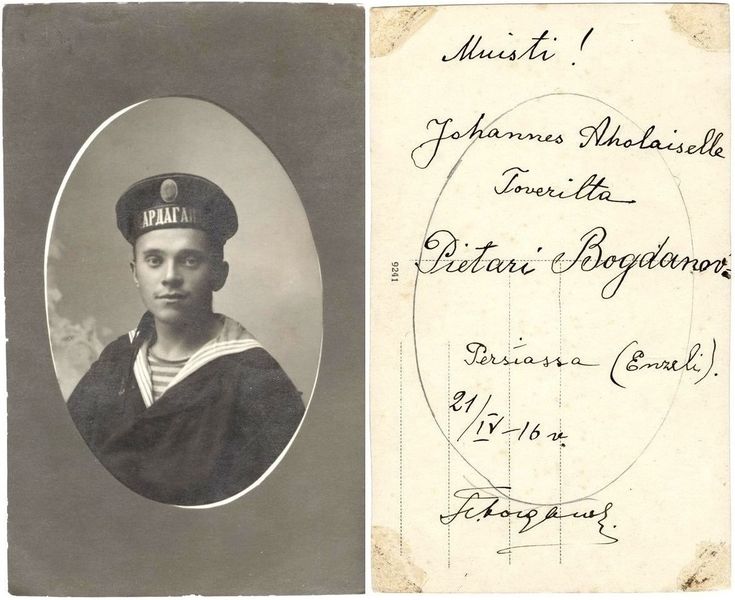 АРДАГАН
Muisti!
Johannes Aholaiselle
Toverilta
Pietari Bogdanov
9241
Persiassa (Enzeli).
21/IV-16 v.